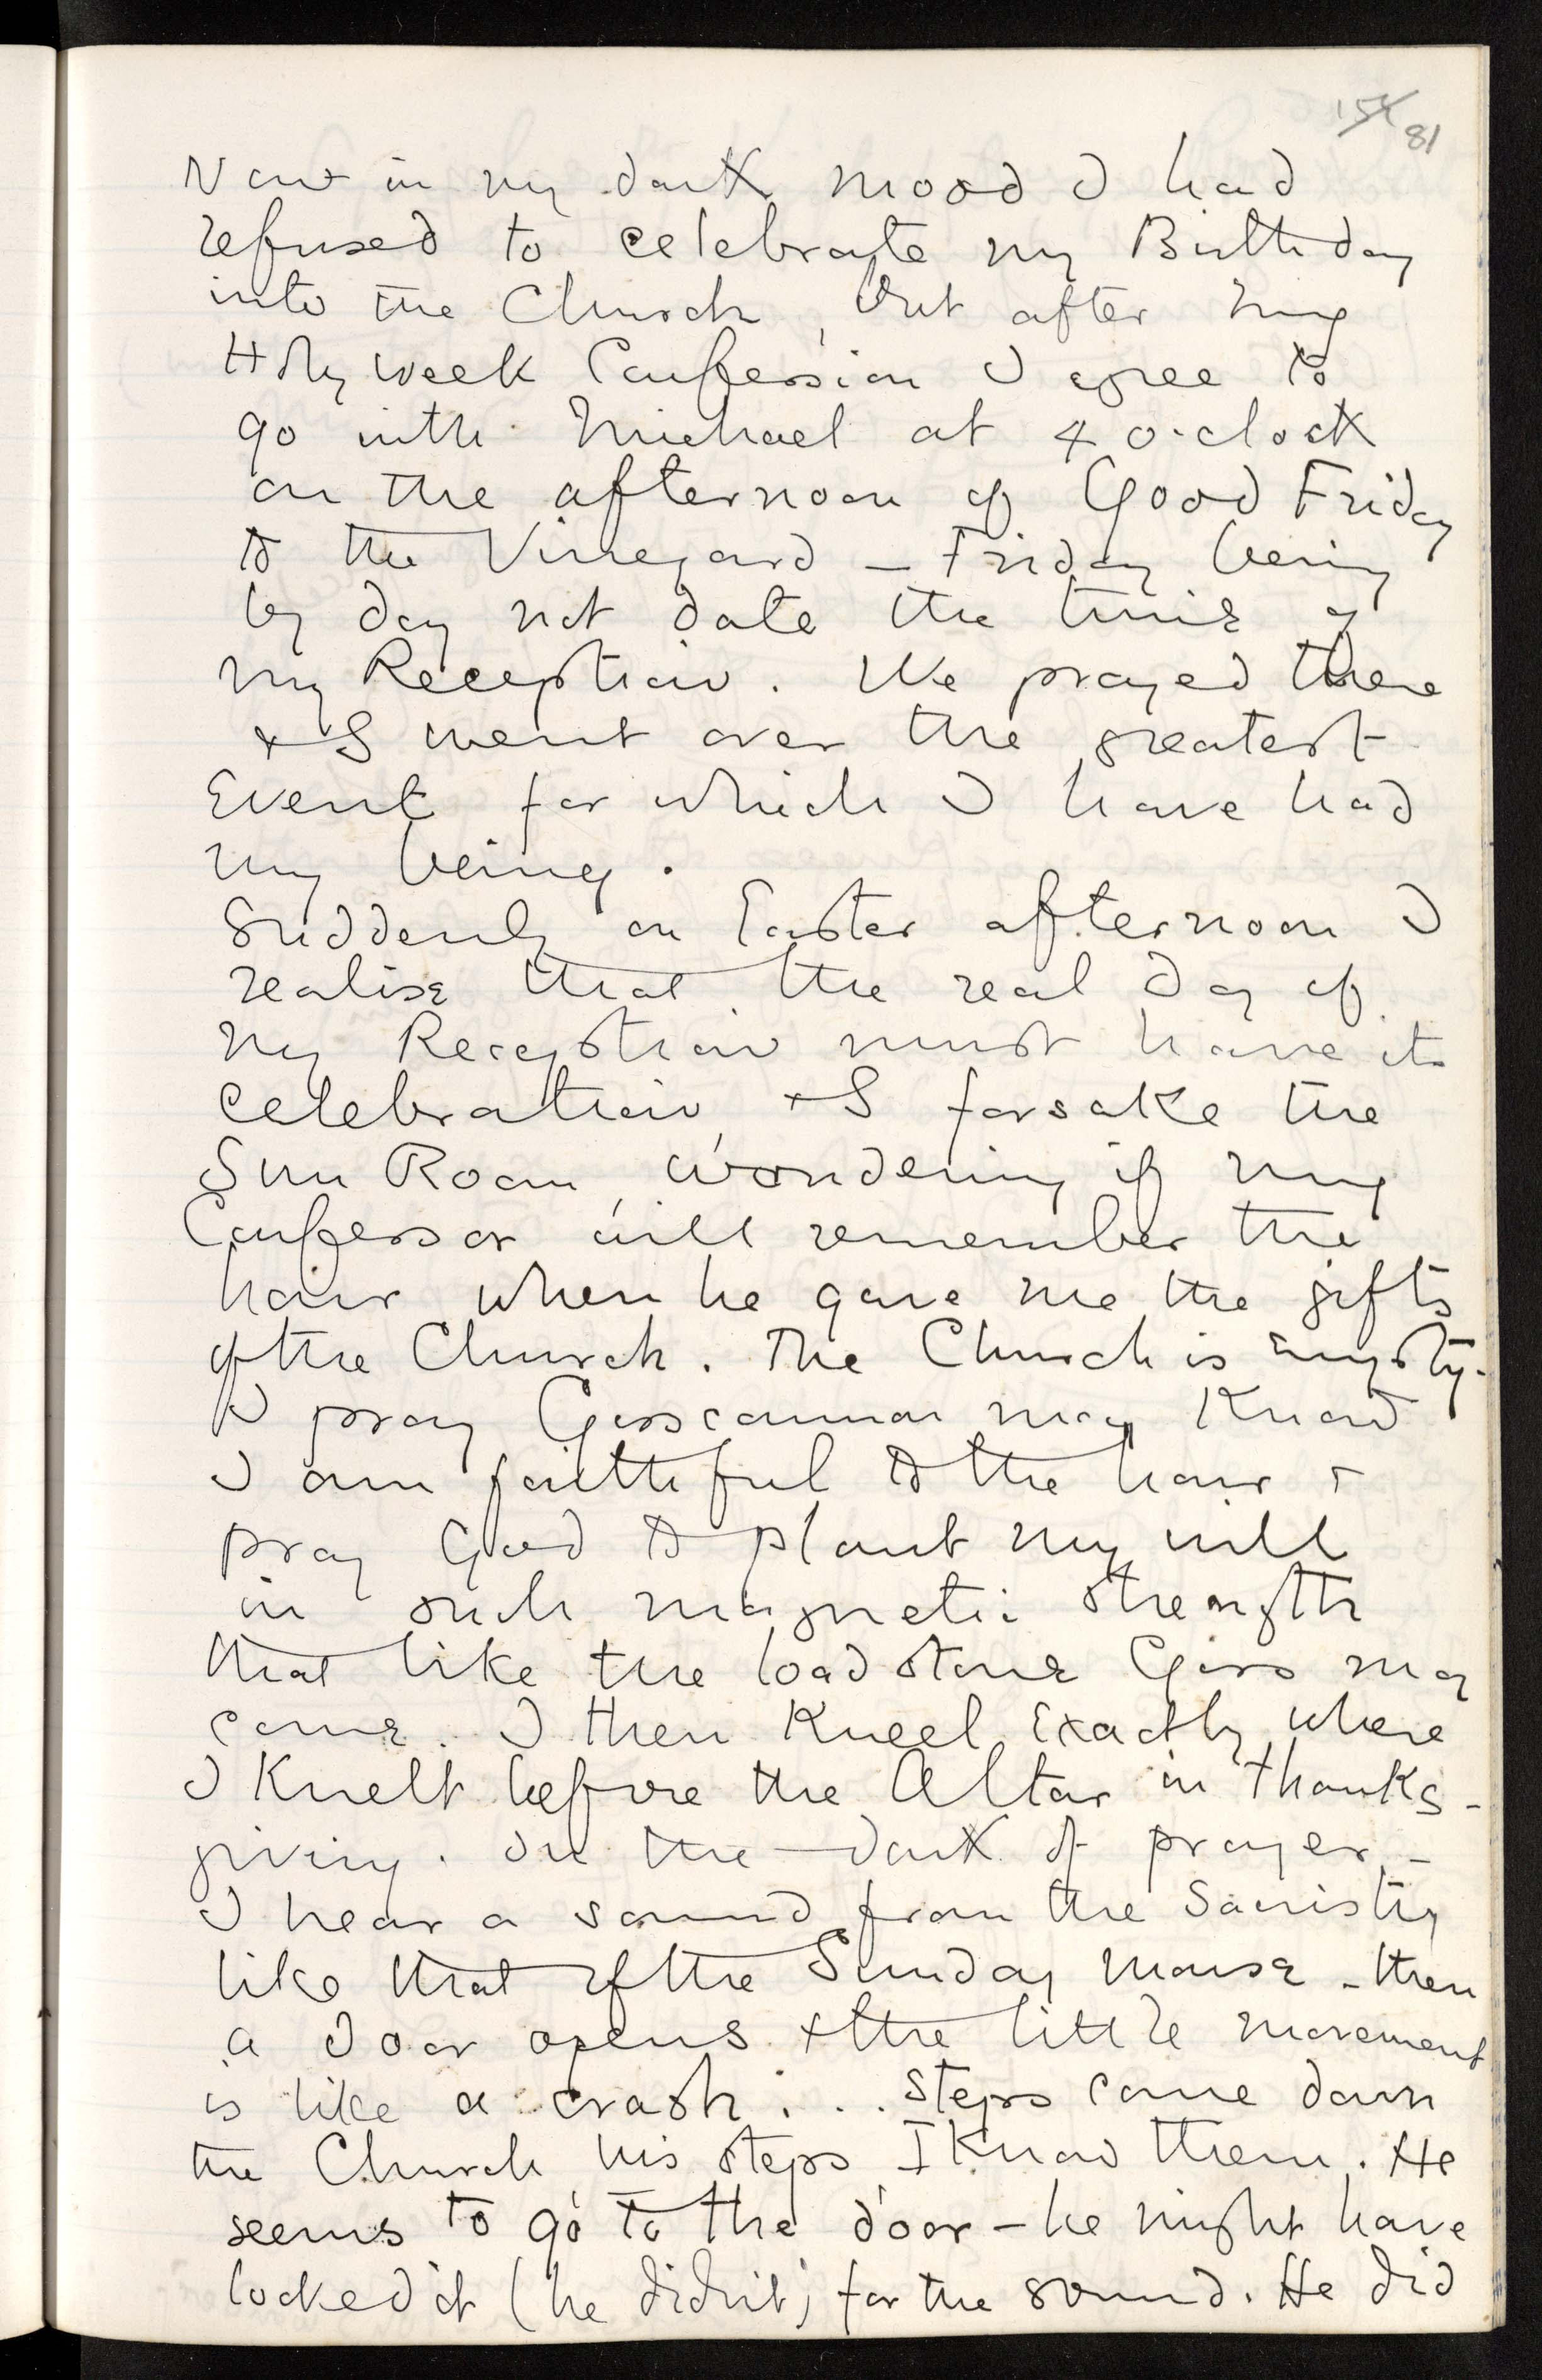 154 81
Now in my dark mood I had
refused to celebrate my Birthday
into the Church, but after my
Holy week Confession I agree to
go with Michael at 4 o'clock
on the afternoon of Good Friday
to the Vineyard – Friday being
by day not date the time of
my Reception. We prayed there
+ I went over the greatest
Event for which I have had
my being.
Suddenly on Easter afternoon I
realise that the real day of
my Reception must have its
celebration + I forsake the
Sun Room, wondering if my
Confessor will remember the
hour when he gave me the gifts
of the Church. The Church is empty.
I pray Gosscannon may know
I am faithful to the hour +
pray God to plant my will
in such magnetic strength
that like the loadstone Goss may
come. I then kneel exactly where
I knelt before the Altar in thanks-
giving. In the dark of prayer –
I hear a sound from the Sacristy
like that of the Sunday mouse – then
a door opens + the little movement
is like a crash . . . steps come down
the Church his steps I know them. He
seems to go to the door – he might have
locked it (he didn't) for the sound. He did